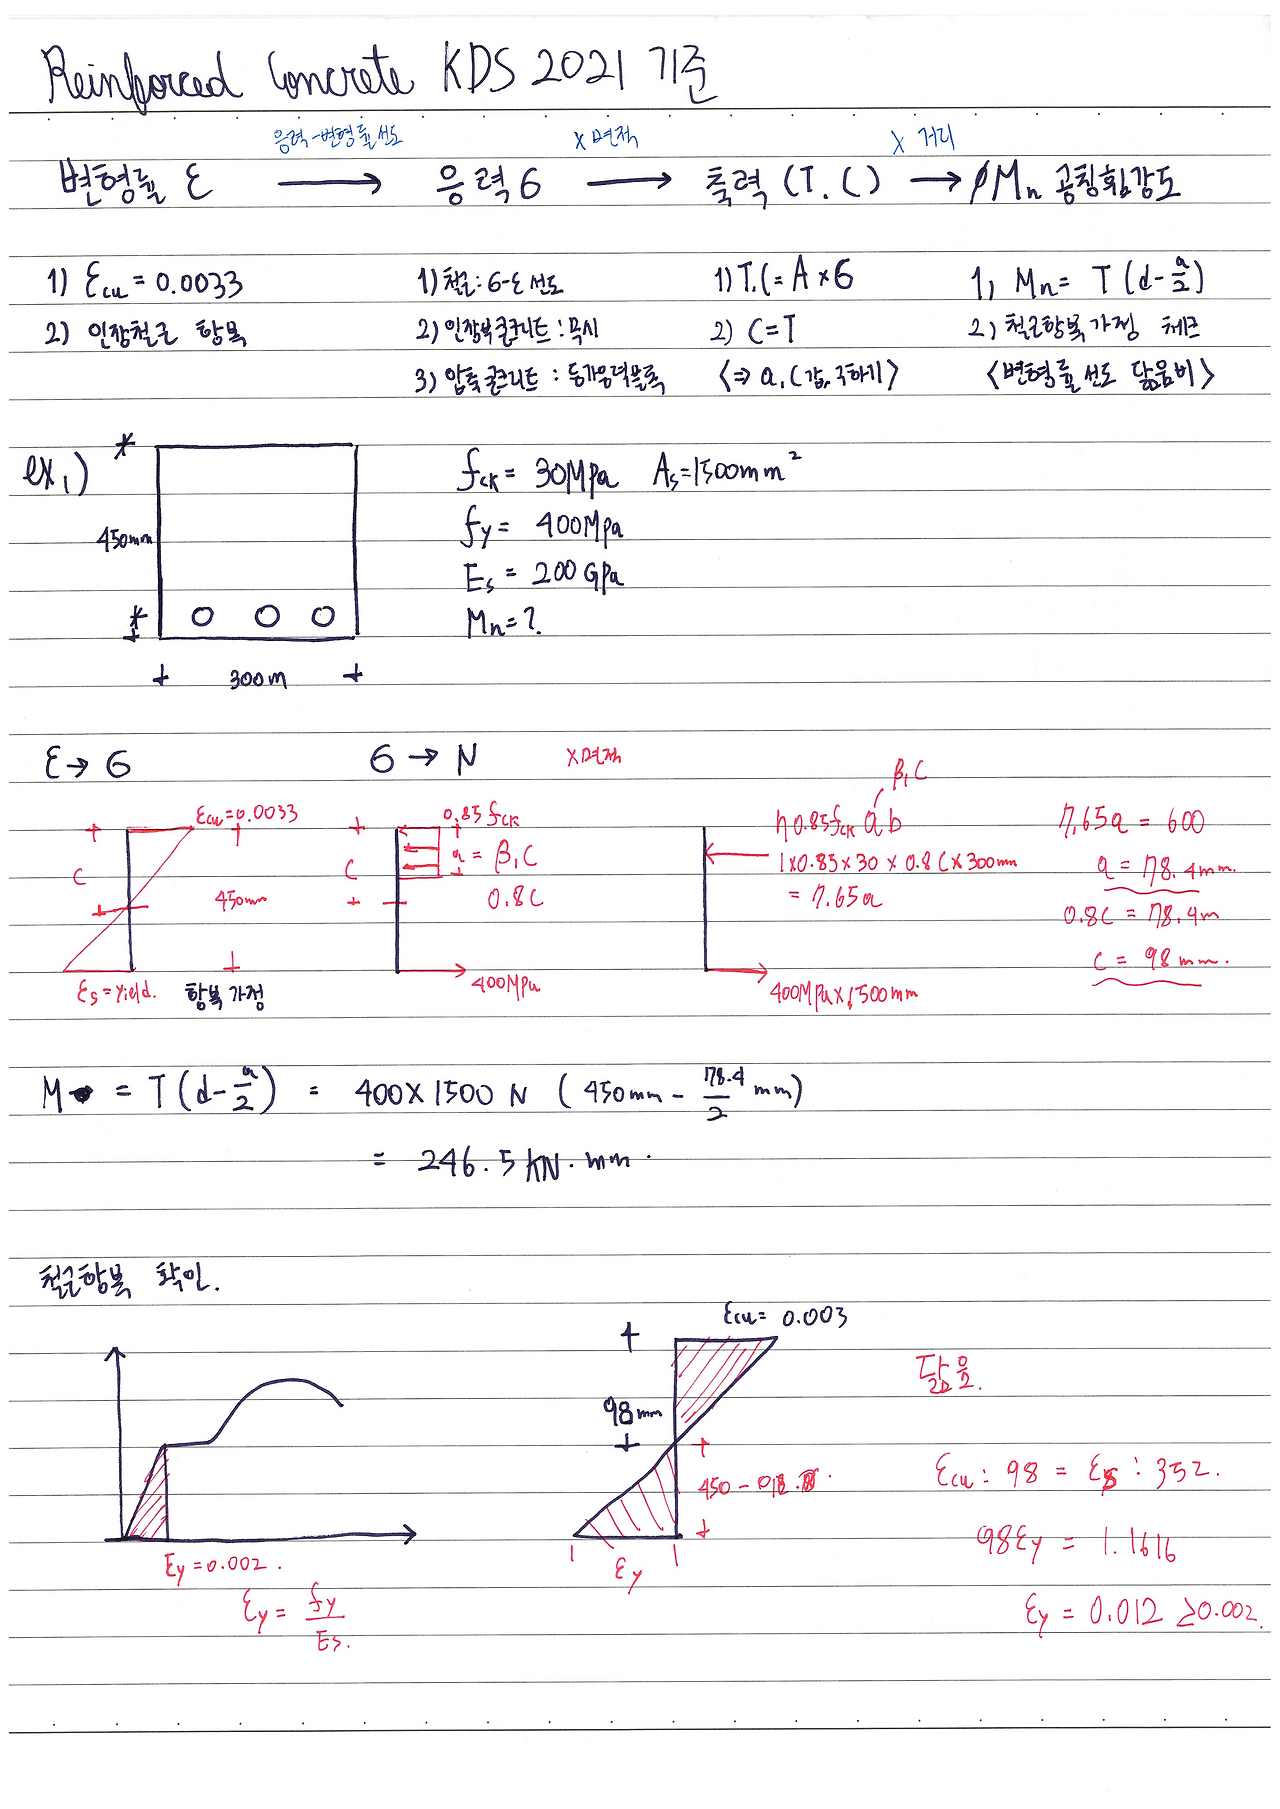 Reinforced Concrete KDS 2021 기준
응력-변형률 선도 × 면적 × 거리
변형률 ε → 응력 σ → 출력 (T.C) → ØMn 공칭휨강도
1) εcu = 0.0033
2) 인장철근 항복
1) 철근: σ-ε 선도
2) 인장부콘크리트 : 무시
3) 압축콘크리트 : 등가응력블록
1) T.C = A × σ
2) C = T
<⇒ a, C 값 구하기>
1) Mn = T (d - a/2)
2) 철근항복가정 체크
<변형률 선도 닮음비>
ex1)
450mm
300m
fck = 30MPa As = 1500mm²
fy = 400MPa
Es = 200GPa
Mn = ?
ε → σ
σ → N ×면적
εcu = 0.0033
C
450mm
εs = Yield. 항복가정
0.85 fck
C
a = β1C
0.8C
400MPa
β1C
η0.85fck a b
1×0.85×30 × 0.8C × 300mm
= 7.65a
400MPa×1500mm
7.65a = 600
a = 78.4mm.
0.8C = 78.4m
C = 98mm.
M = T (d - a/2) = 400×1500 N (450mm - 78.4/2 mm)
= 246.5 kN.mm.
철근항복 확인.
εy = 0.002.
εy = fy/Es.
εcu = 0.003
98mm
450 -
εy
닮음.
εcu : 98 = εs : 352.
98εy = 1.1616
εy = 0.012 ≥0.002.